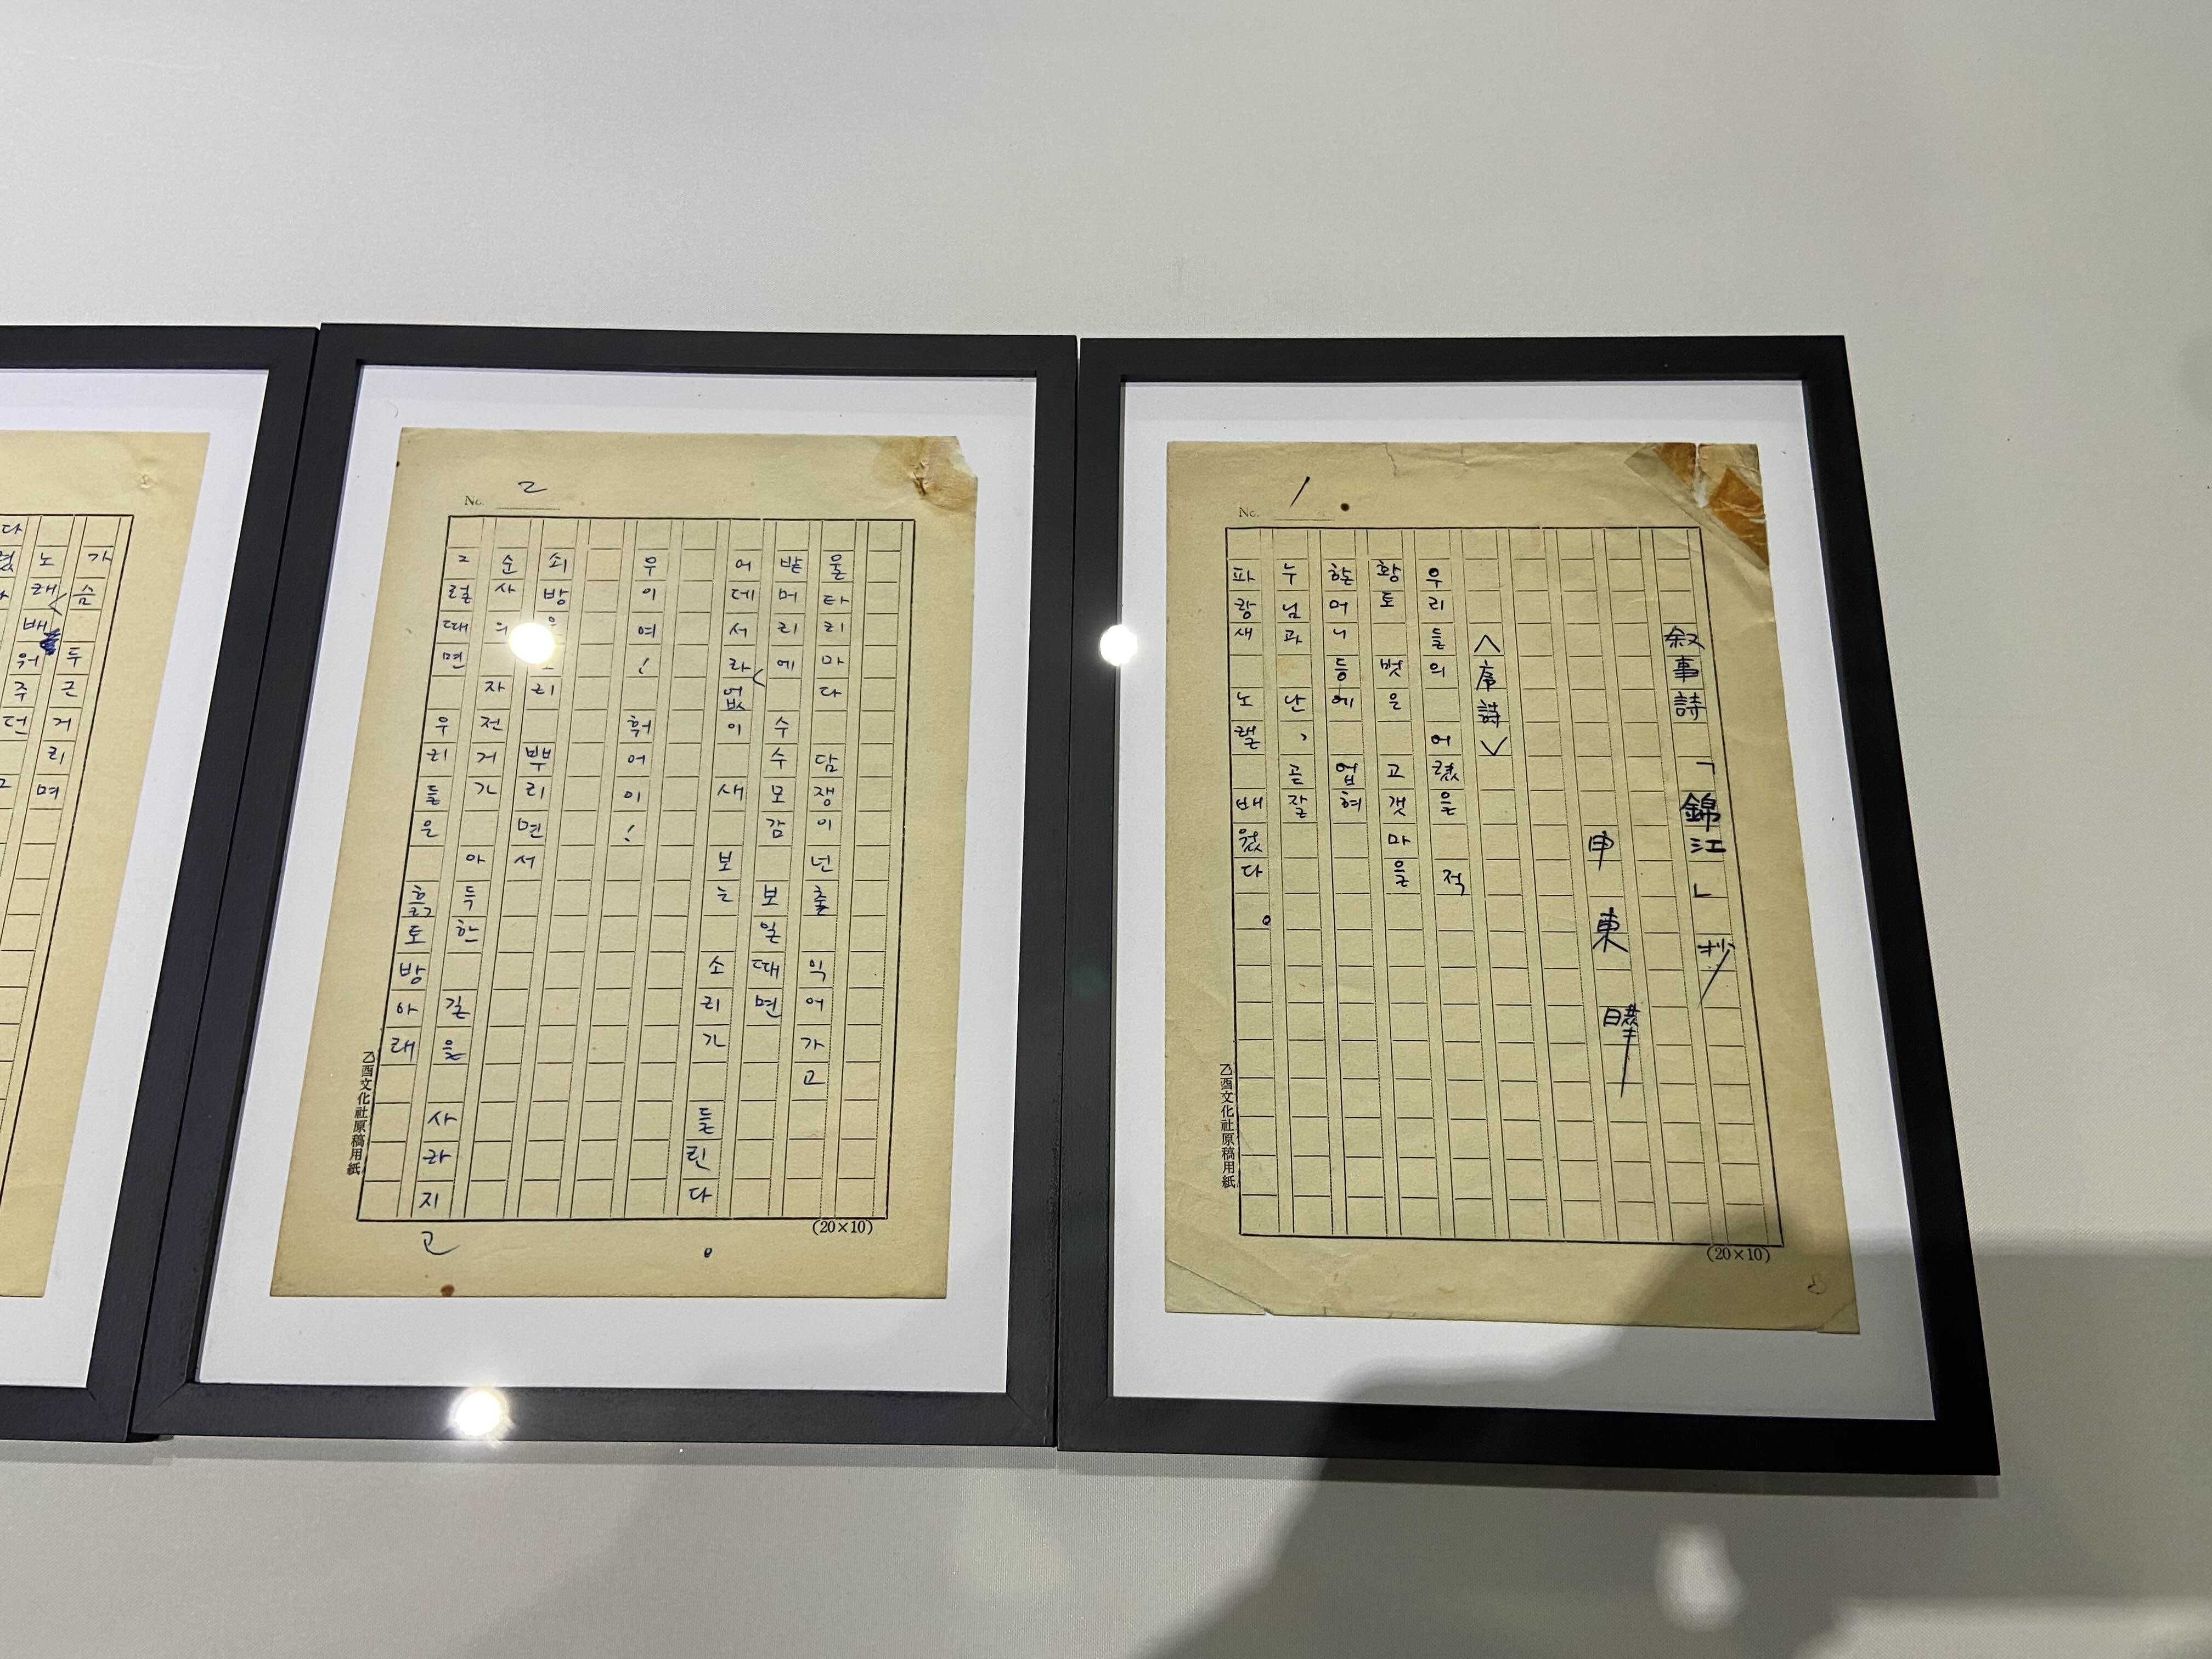 No. 1
叙事詩 「錦江」 抄
申東曄
<序詩>
우리들의 어렸을 적
황토 벗은 고갯마을
할머니 등에 업혀
누님과 난, 곧잘
파랑새 노랠 배웠다.
乙酉文化社原稿用紙
(20×10)
No. 2
울타리마다 담쟁이 넌출 익어가고
밭머리에 수수모감 보일때면
어데서라 없이 새 보는 소리가 들린다.
우이여! 훠어이!
쇠방울소리 뿌리면서
순사의 자전거가 아득한 길을 사라지고
그럴때면 우리들은 흙토방 아래
乙酉文化社原稿用紙
(20×10)
가슴 두근거리며
노래 배워주던